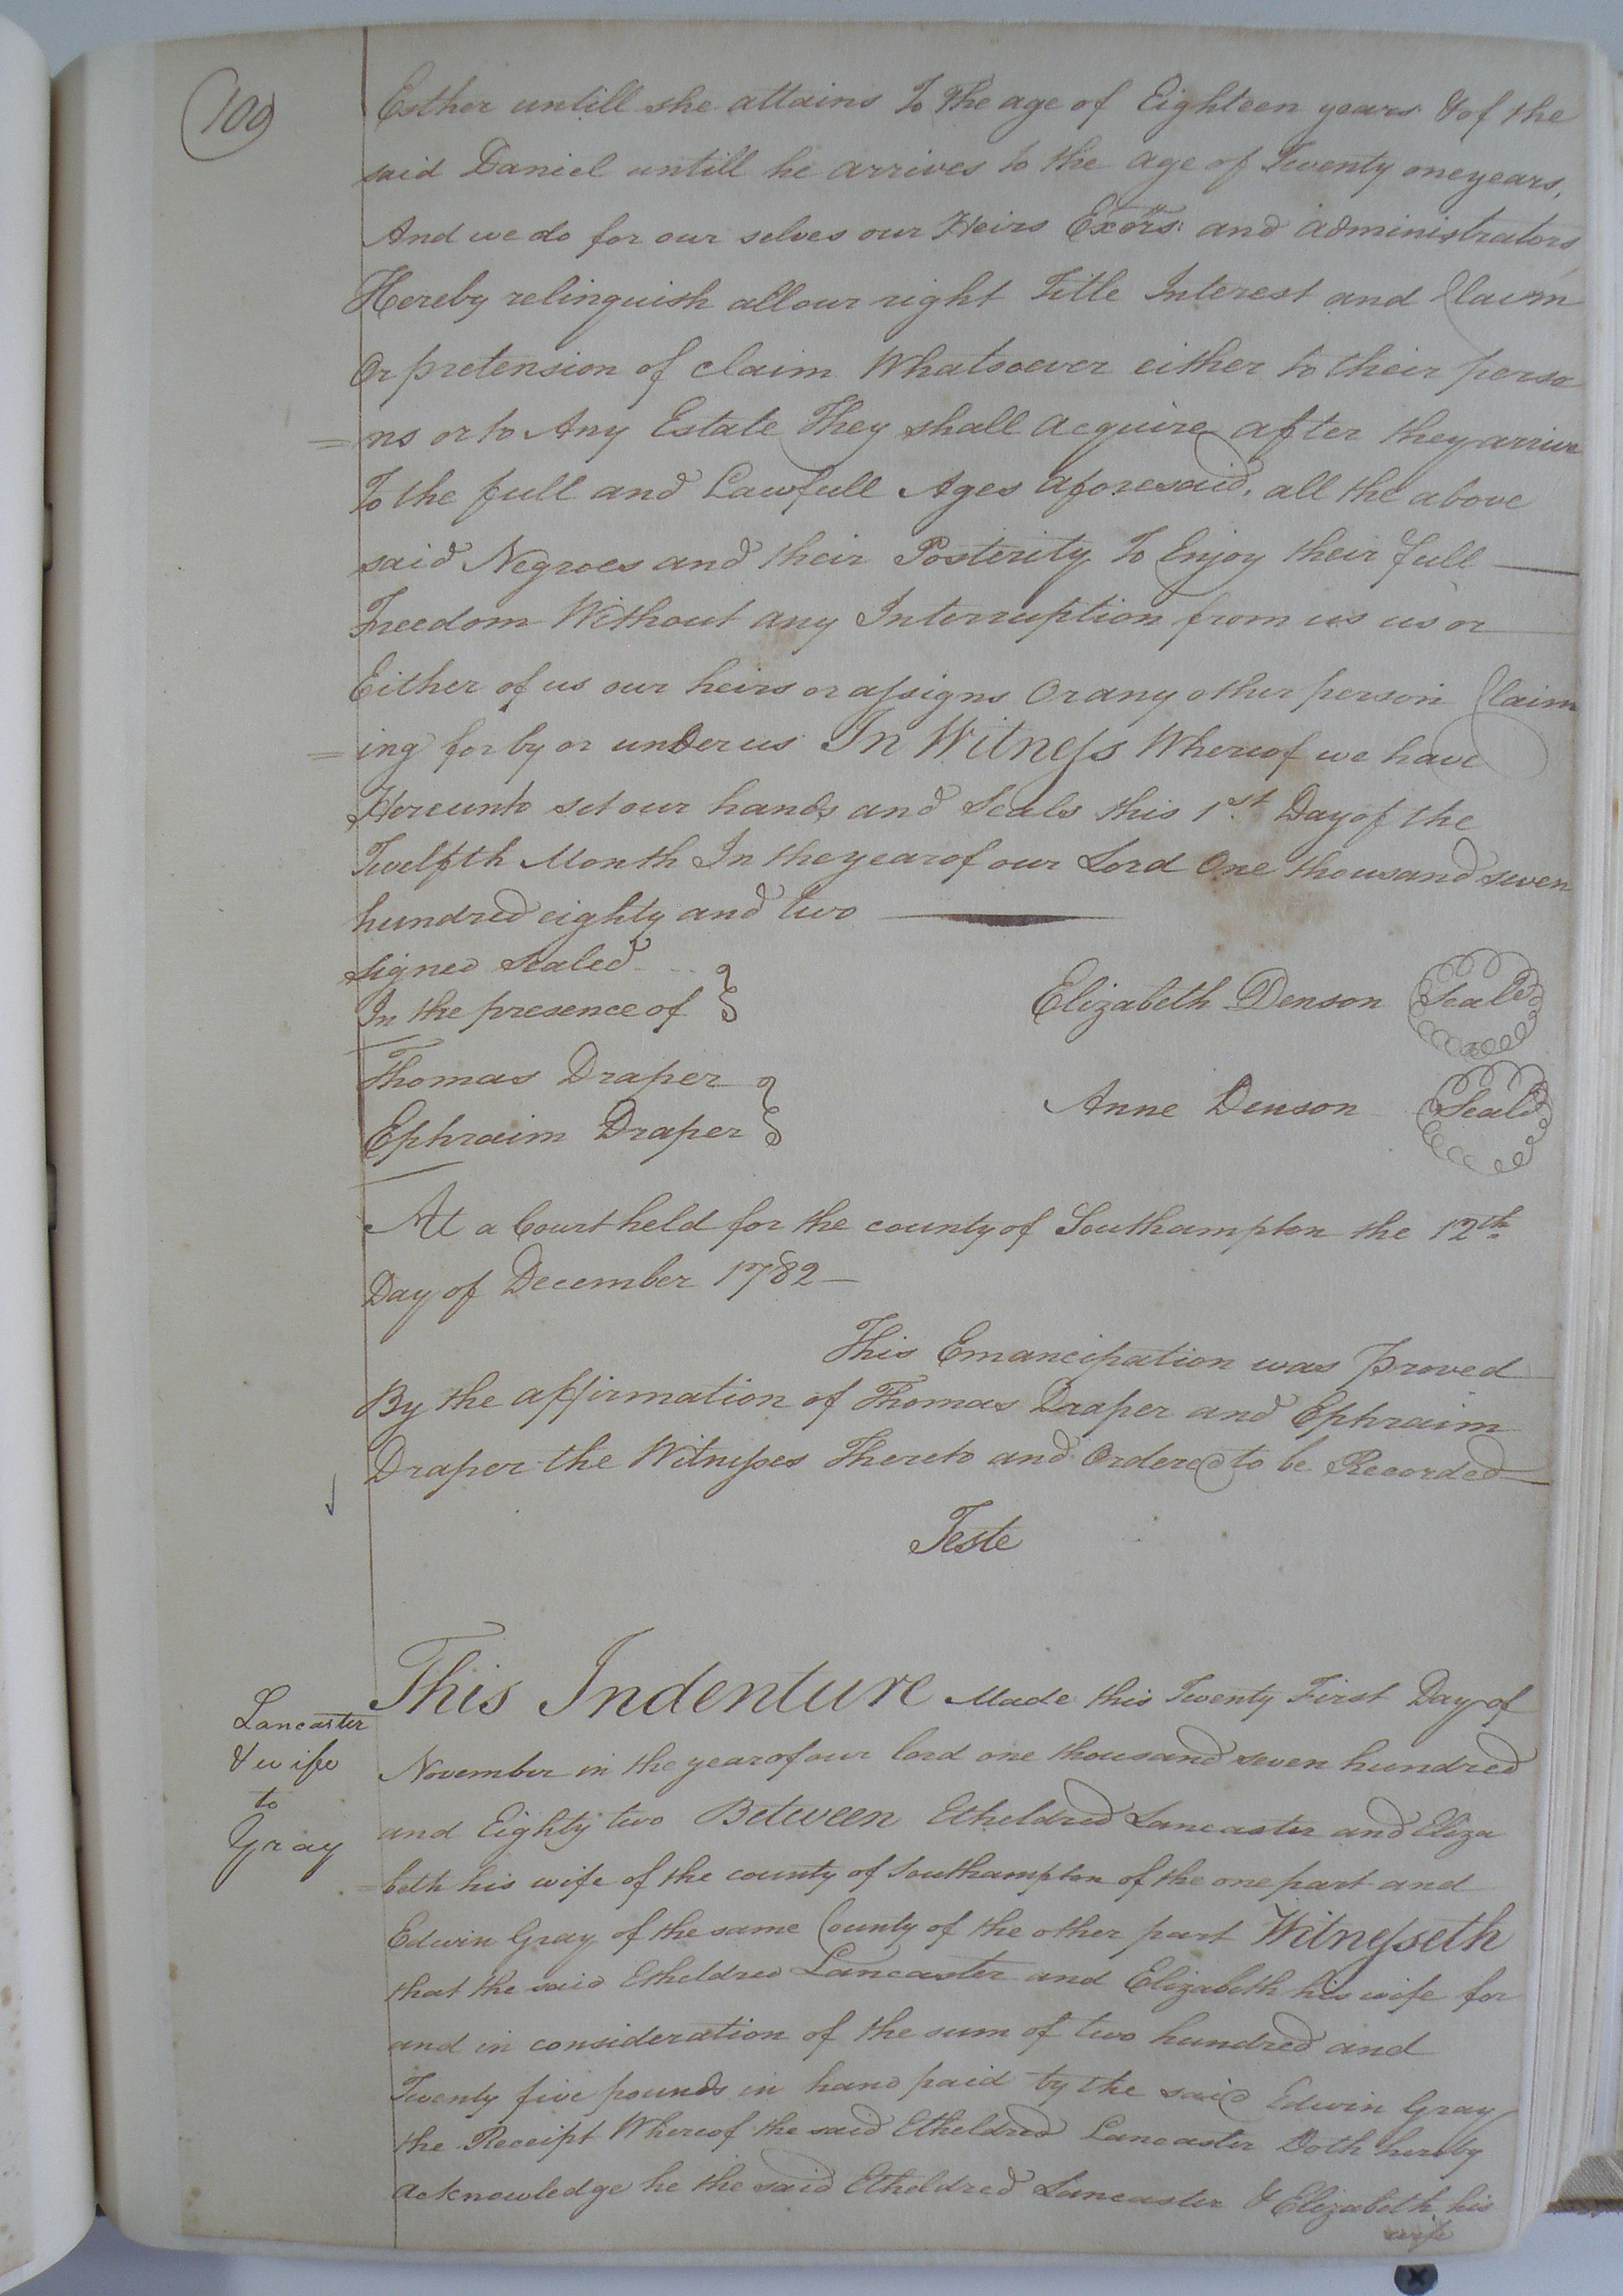 100
Esther untill she attains To the age of Eighteen years & of the
said Daniel untill he arrives to the age of Twenty one years,
And we do for our selves our Heirs Exors. and administrators
Hereby relinquish all our right Title Interest and Claim
Or pretension of claim Whatsoever either to their perso
= ns or to Any Estate They shall acquire after they arrive
To the full and Lawfull Ages aforesaid, all the above
said Negroes and their Posterity To Enjoy their full
Freedom Without any Interruption from us us or
Either of us our heirs or assigns Or any other person Claim
= ing for by or under us In Witness Whereof we have
Hereunto set our hands and Seals this 1st Day of the
Twelfth Month In the year of our Lord One thousand seven
hundred eighty and two
Signed Sealed
In the presence of
Elizabeth Denson Seal
Thomas Draper
Anne Denson Seal
Ephraim Draper
At a Court held for the county of Southampton the 12th
Day of December 1782
This Emancipation was proved
By the affirmation of Thomas Draper and Ephraim
Draper the Witnesses Thereto and Ordered to be Recorded
Teste
Lancaster
& wife
to
Gray
This Indenture Made this Twenty First Day of
November in the year of our lord one thousand seven hundred
and Eighty two Between Etheldred Lancaster and Eliza
= beth his wife of the county of Southampton of the one part and
Edwin Gray of the same County of the other part Witnesseth
that the said Etheldred Lancaster and Elizabeth his wife for
and in consideration of the sum of two hundred and
Twenty five pounds in hand paid by the said Edwin Gray
the Receipt Whereof the said Etheldred Lancaster Doth hereby
acknowledge he the said Etheldred Lancaster & Elizabeth his
wife